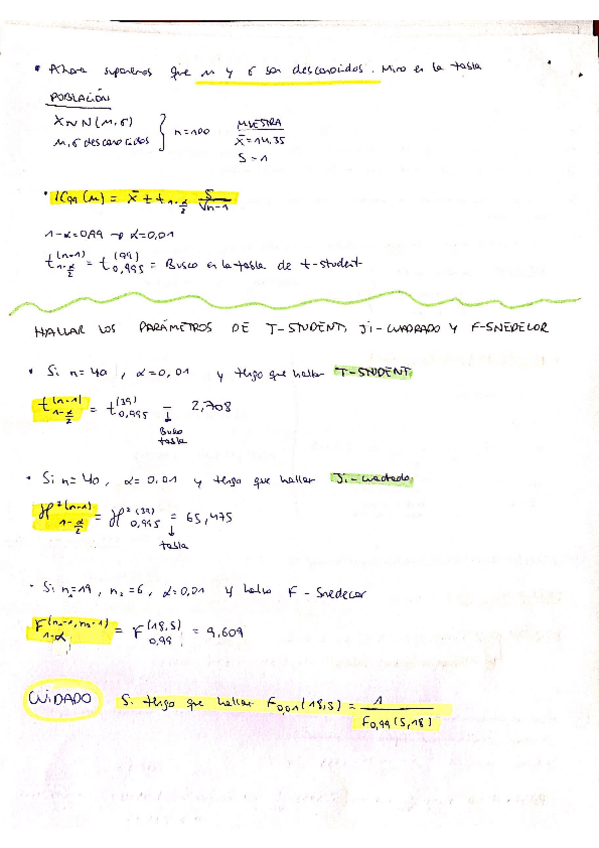 • Ahora suponemos que μ y σ son desconocidos. Miro en la tabla
POBLACIÓN
X ~ N(μ, σ)
μ, σ desconocidos } n=100
MUESTRA
x̄ = 14,35
S = 1
• IC₉₉(μ) = x̄ ± t_{1-α/2} S/√(n-1)
1-α=0,99 → α=0,01
t_{1-α/2}^{(n-1)} = t_{0,995}^{(99)} = Busco en la tabla de t-student
HALLAR LOS PARÁMETROS DE T-STUDENT, JI-CUADRADO Y F-SNEDECOR
• Si n=40, α=0,01 y tengo que hallar T-STUDENT
t_{1-α/2}^{(n-1)} = t_{0,995}^{(39)} = 2,708
↓
Busco
tabla
• Si n=40, α=0,01 y tengo que hallar Ji-cuadrado
χ²_{1-α/2}^{(n-1)} = χ²_{0,995}^{(39)} = 65,475
↓
tabla
• Si n₁=19, n₂=6, α=0,01 y hallo F-Snedecor
F_{1-α}^{(n₁-1, n₂-1)} = F_{0,99}^{(18,5)} = 9,609
CUIDADO Si tengo que hallar F_{0,01}(18,5) = 1/F_{0,99}(5,18)